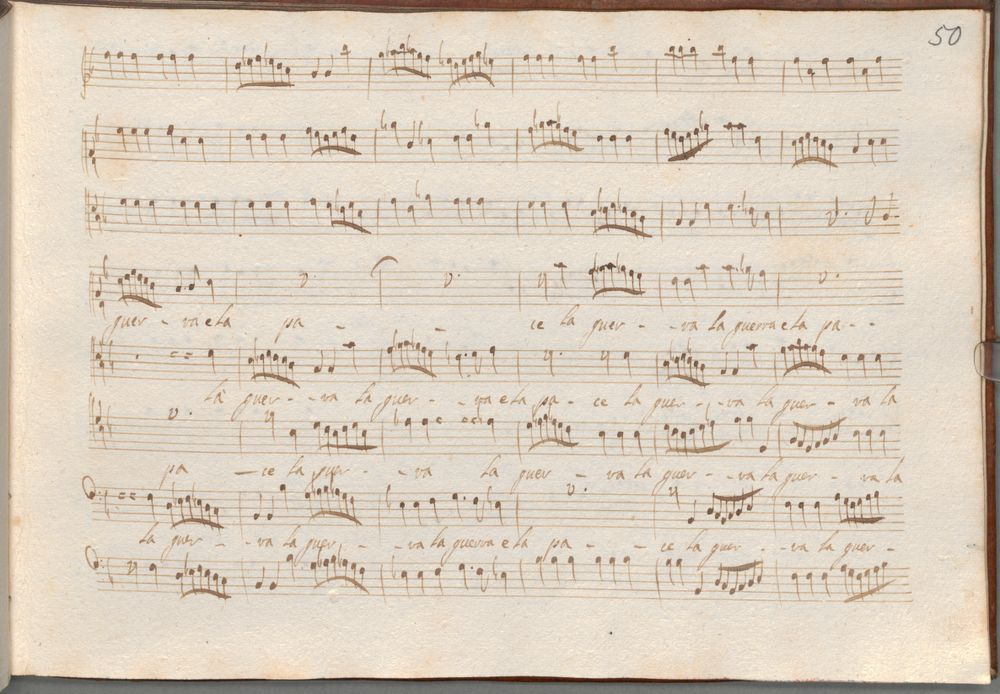 50
guer - va e la pa - - ce la guer - - va la guerra e la pa - -
la guer - - va la guer - - va e la pa - ce la guer - - va la guer - va la
pa - ce la guer - - va la guer - va la guer - - va la guer - va la
la guer - - va la guer - - va la guerra e la pa - - ce la guer - - va la guer -